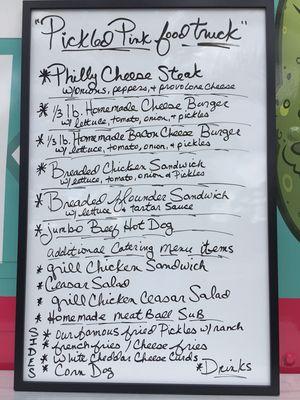 "Pickled Pink food truck"
* Philly Cheese Steak
w/onions, peppers, & provolone cheese
* 1/3 lb. Homemade Cheese Burger
w/ lettuce, tomato, onion, & pickles
* 1/3 lb. Homemade Bacon Cheese Burger
w/ lettuce, tomato, onion, & pickles
* Breaded Chicken Sandwich
w/ lettuce, tomato, onion & Pickles
* Breaded flounder Sandwich
w/ lettuce & tartar Sauce
* Jumbo Beef Hot Dog
additional Catering menu items
* grill Chicken Sandwich
* Ceasar Salad
* grill Chicken Ceasar Salad
* Homemade meat Ball Sub
SIDES
* our famous fried Pickles w/ ranch
* french fries / Cheese fries
* White Cheddar Cheese Curds
* Corn Dog
* Drinks